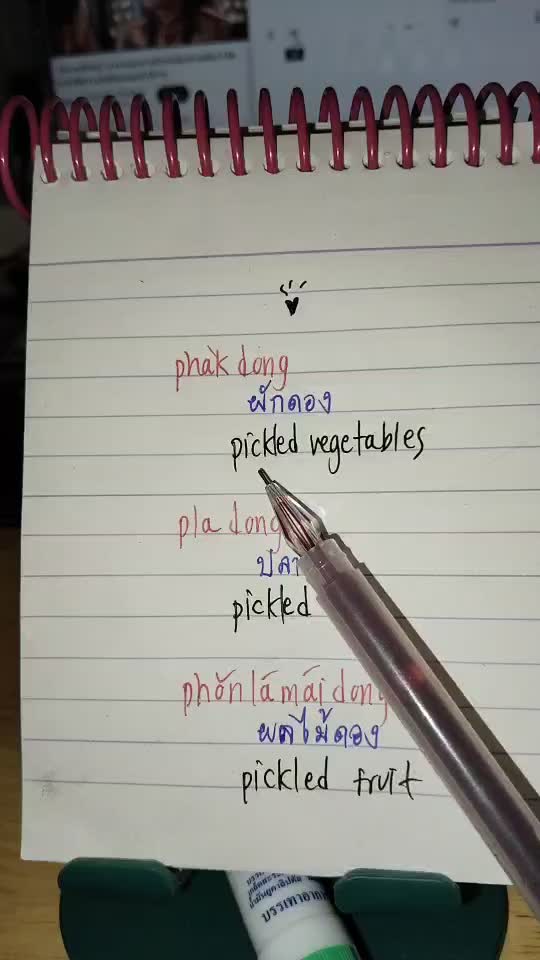 phàk dong
ผักดอง
pickled vegetables
pla dong
ปลา
pickled
phŏn lá mái dong
ผลไม้ดอง
pickled fruit
บรรเทาอาก